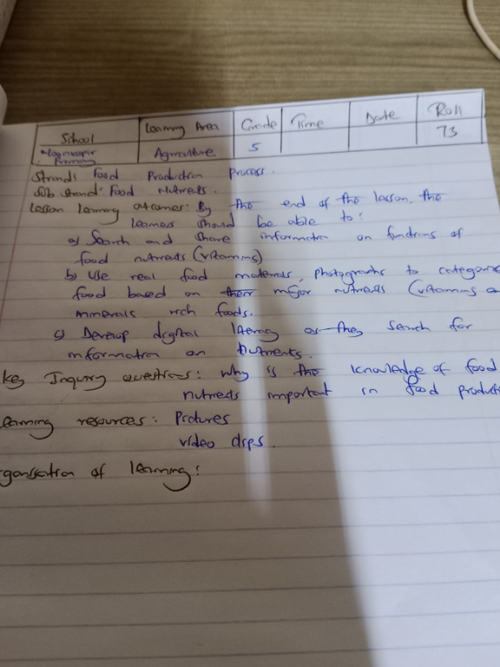 School Learning Area Grade Time Date Roll
Primary Agriculture 5 73
Strand: Food Production Process.
Sub strand: Food Nutrients.
Lesson learning outcomes: By the end of the lesson, the
learners should be able to:
a) Search and share information on functions of
food nutrients (vitamins)
b) Use real food materials, photographs to categorize
food based on their major nutrients (vitamins a
minerals rich foods.
c) Develop digital literacy as they search for
information on nutrients.
Key Inquiry questions: Why is the knowledge of food
nutrients important in food product
earning resources: Pictures
video clips.
ganisation of learning: